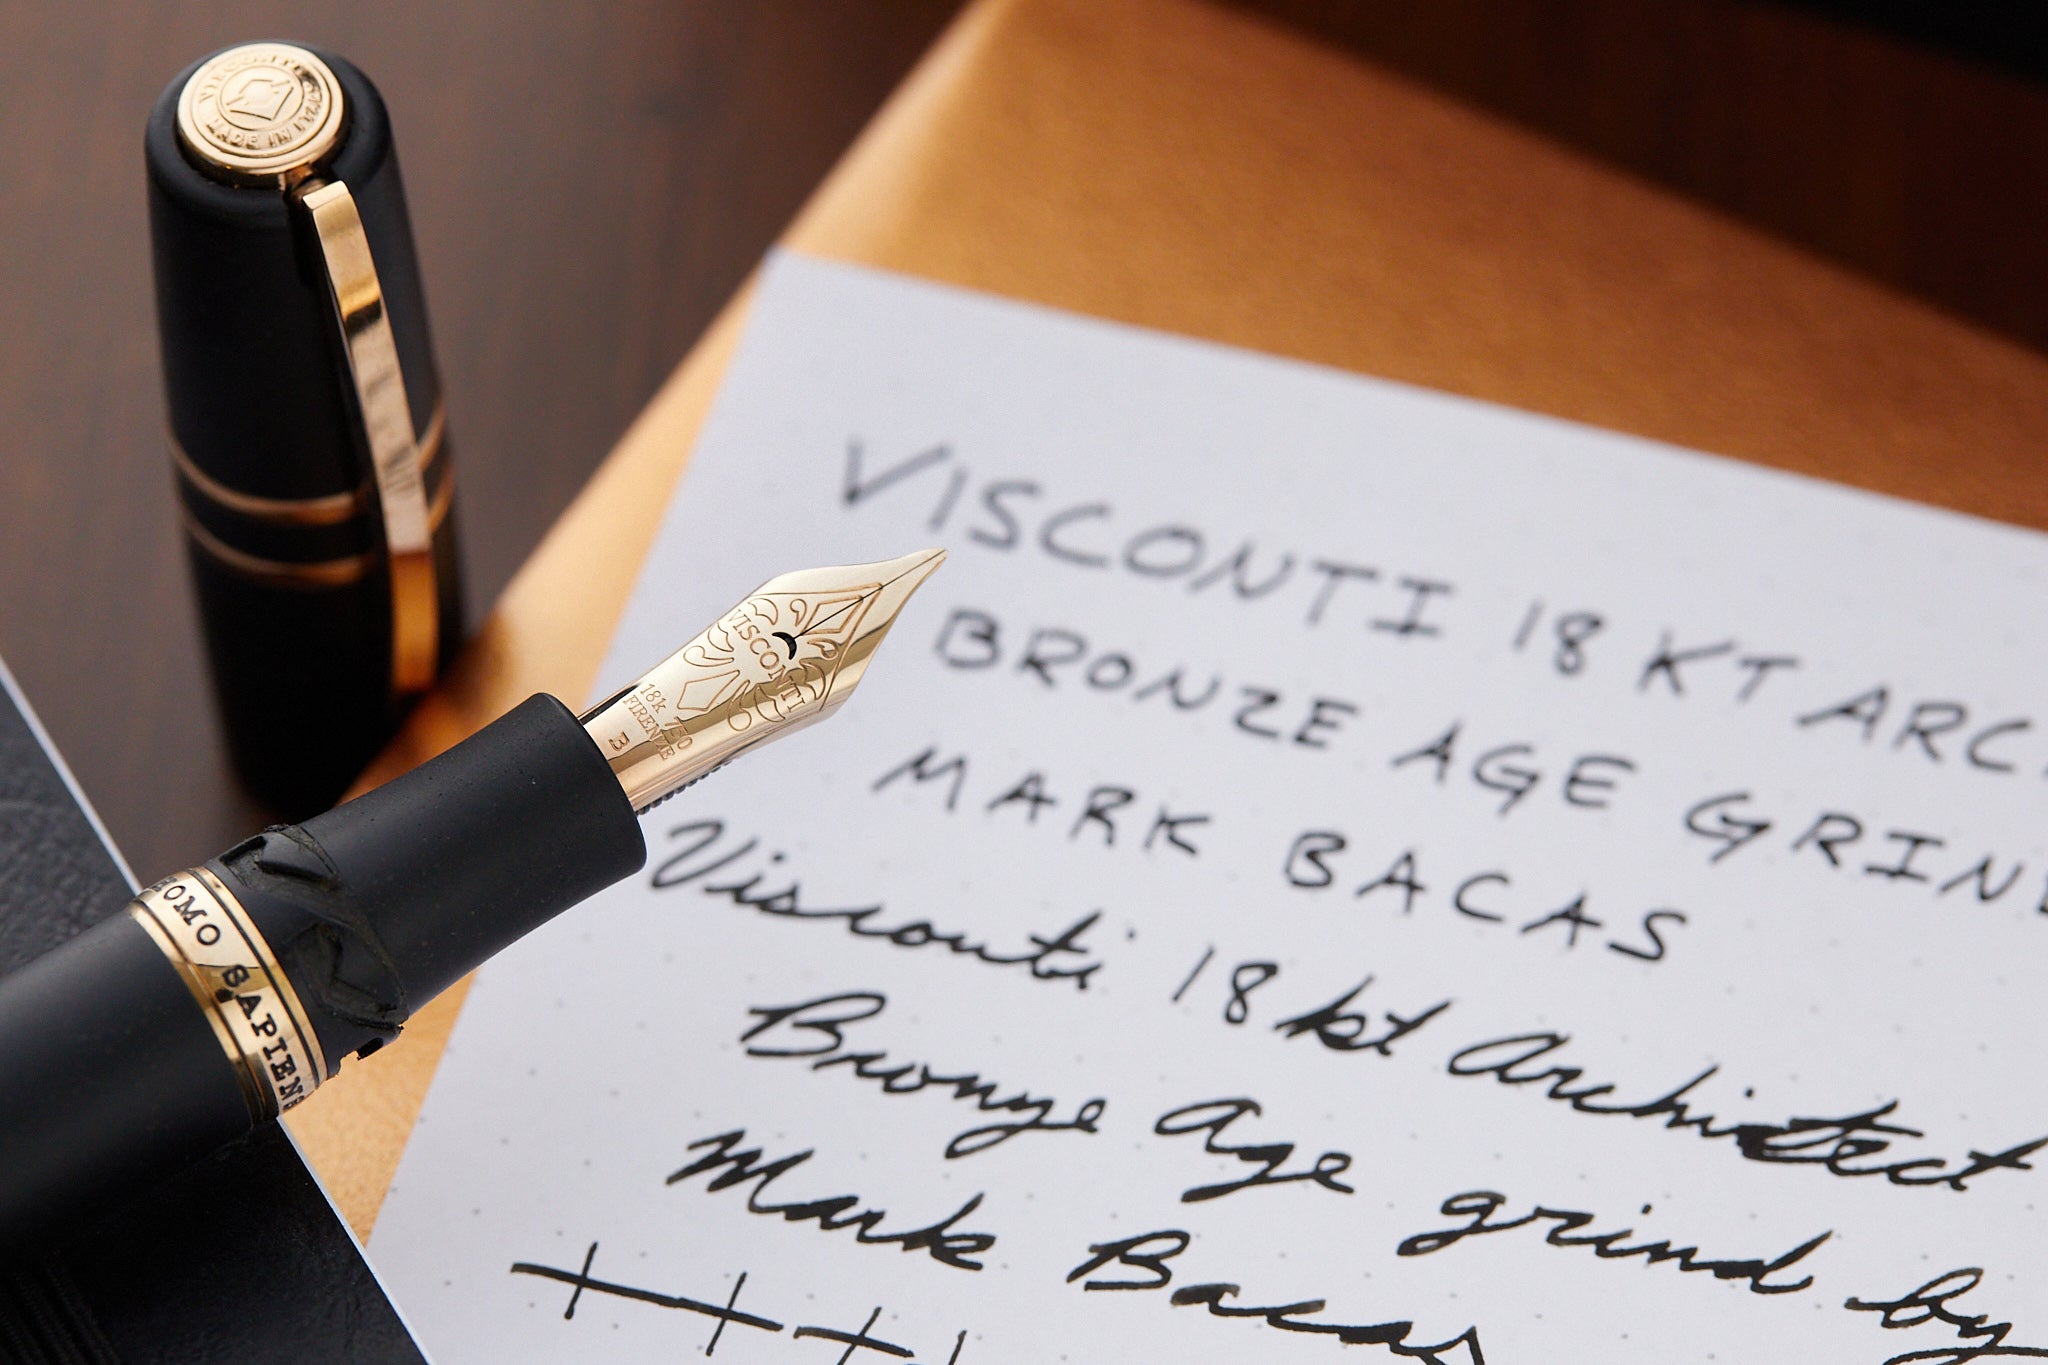 VISCONTI
MADE IN ITALY
VISCONTI
18k 750
FIRENZE
B
HOMO SAPIENS
VISCONTI 18 KT ARC
BRONZE AGE GRIN
MARK BACAS
Visconti 18 kt Architect
Bronze Age grind by
Mark Bacas